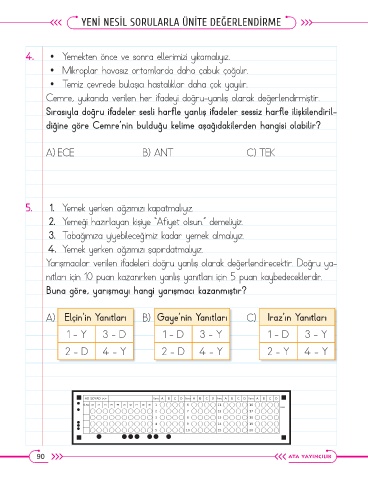 YENİ NESİL SORULARLA ÜNİTE DEĞERLENDİRME
4. • Yemekten önce ve sonra ellerimizi yıkamalıyız.
• Mikroplar havasız ortamlarda daha çabuk çoğalır.
• Temiz çevrede bulaşıcı hastalıklar daha çok yayılır.
Cemre, yukarıda verilen her ifadeyi doğru-yanlış olarak değerlendirmiştir.
Sırasıyla doğru ifadeler sesli harfle yanlış ifadeler sessiz harfle ilişkilendiril-
diğine göre Cemre'nin bulduğu kelime aşağıdakilerden hangisi olabilir?
A) ECE B) ANT C) TEK
5. 1. Yemek yerken ağzımızı kapatmalıyız.
2. Yemeği hazırlayan kişiye "Afiyet olsun." demeliyiz.
3. Tabağımıza yiyebileceğimiz kadar yemek almalıyız.
4. Yemek yerken ağzımızı şapırdatmalıyız.
Yarışmacılar verilen ifadeleri doğru yanlış olarak değerlendirecektir. Doğru ya-
nıtları için 10 puan kazanırken yanlış yanıtları için 5 puan kaybedeceklerdir.
Buna göre, yarışmayı hangi yarışmacı kazanmıştır?
A) Elçin'in Yanıtları B) Gaye'nin Yanıtları C) Iraz'ın Yanıtları
1 - Y 3 - D 1 - D 3 - Y 1 - D 3 - Y
2 - D 4 - Y 2 - D 4 - Y 2 - Y 4 - Y
90 ATA YAYINCILIK